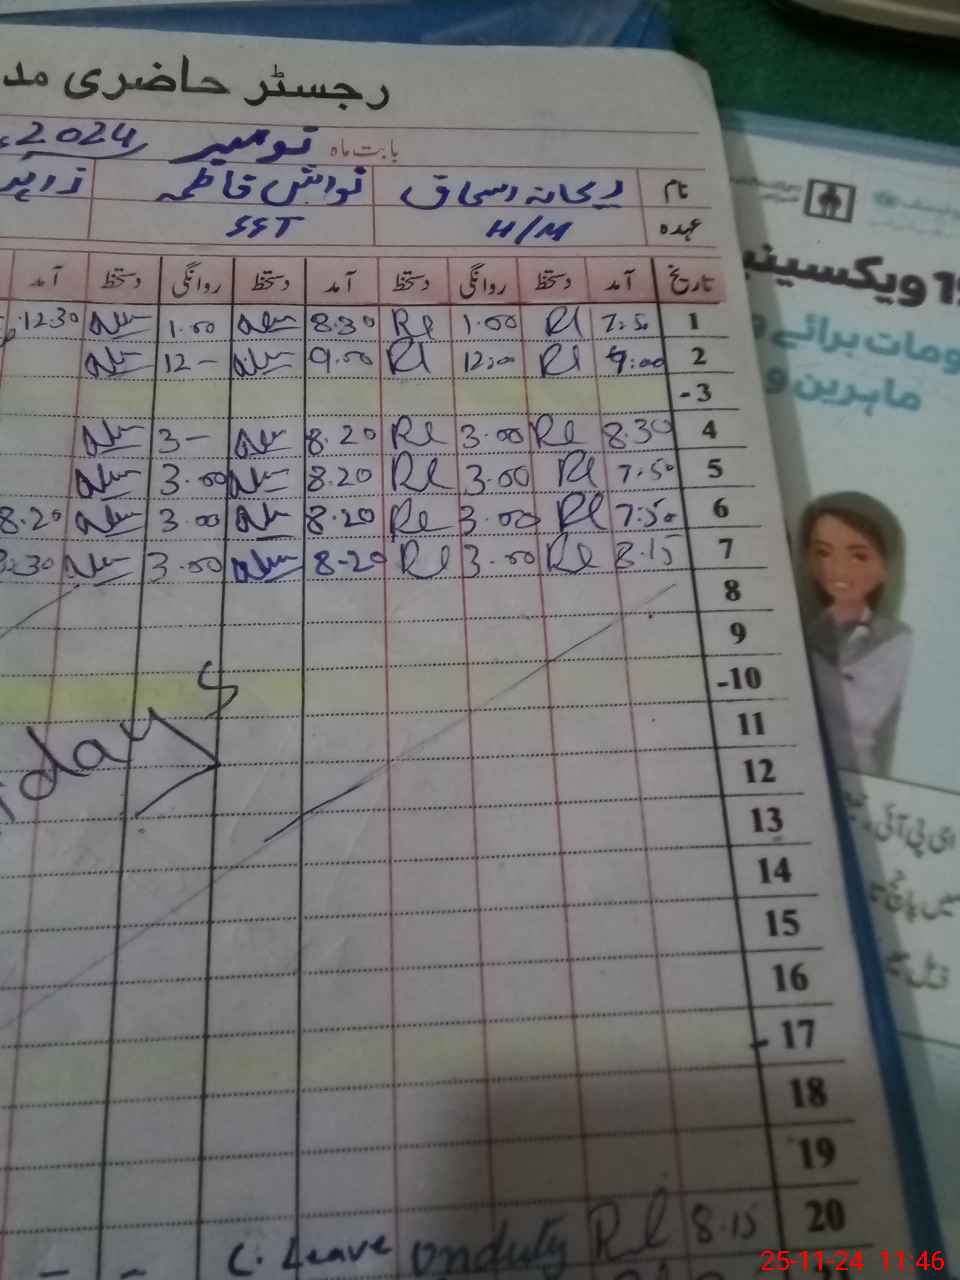 رجسٹر حاضری مد
بابت ماہ نومبر 2024ء
نام ریحانہ اسحاق نوازش فاطمہ
عہدہ H/M SST
تاریخ آمد دستخط روانگی دستخط آمد دستخط روانگی دستخط آمد
1 7:50 Rl 1.00 Rl 8.30 1.00 12:30
2 9:00 Rl 12:00 Rl 9.00 12-
-3
4 8.30 Rl 3.00 Rl 8.20 3-
5 7.50 Rl 3.00 Rl 8.20 3.00
6 7:50 Rl 3.00 Rl 8.20 3.00 8.20
7 8.15 Rl 3.00 Rl 8-20 3.00 8:30
8
9
-10
11
12
13
14
15
16
-17
18
19
20 8.15 Rl onduty C. Leave
idays
19 ویکسین
ومات برائے
ماہرین و
ای پی آئی
میں پانچ
25-11-24 11:46